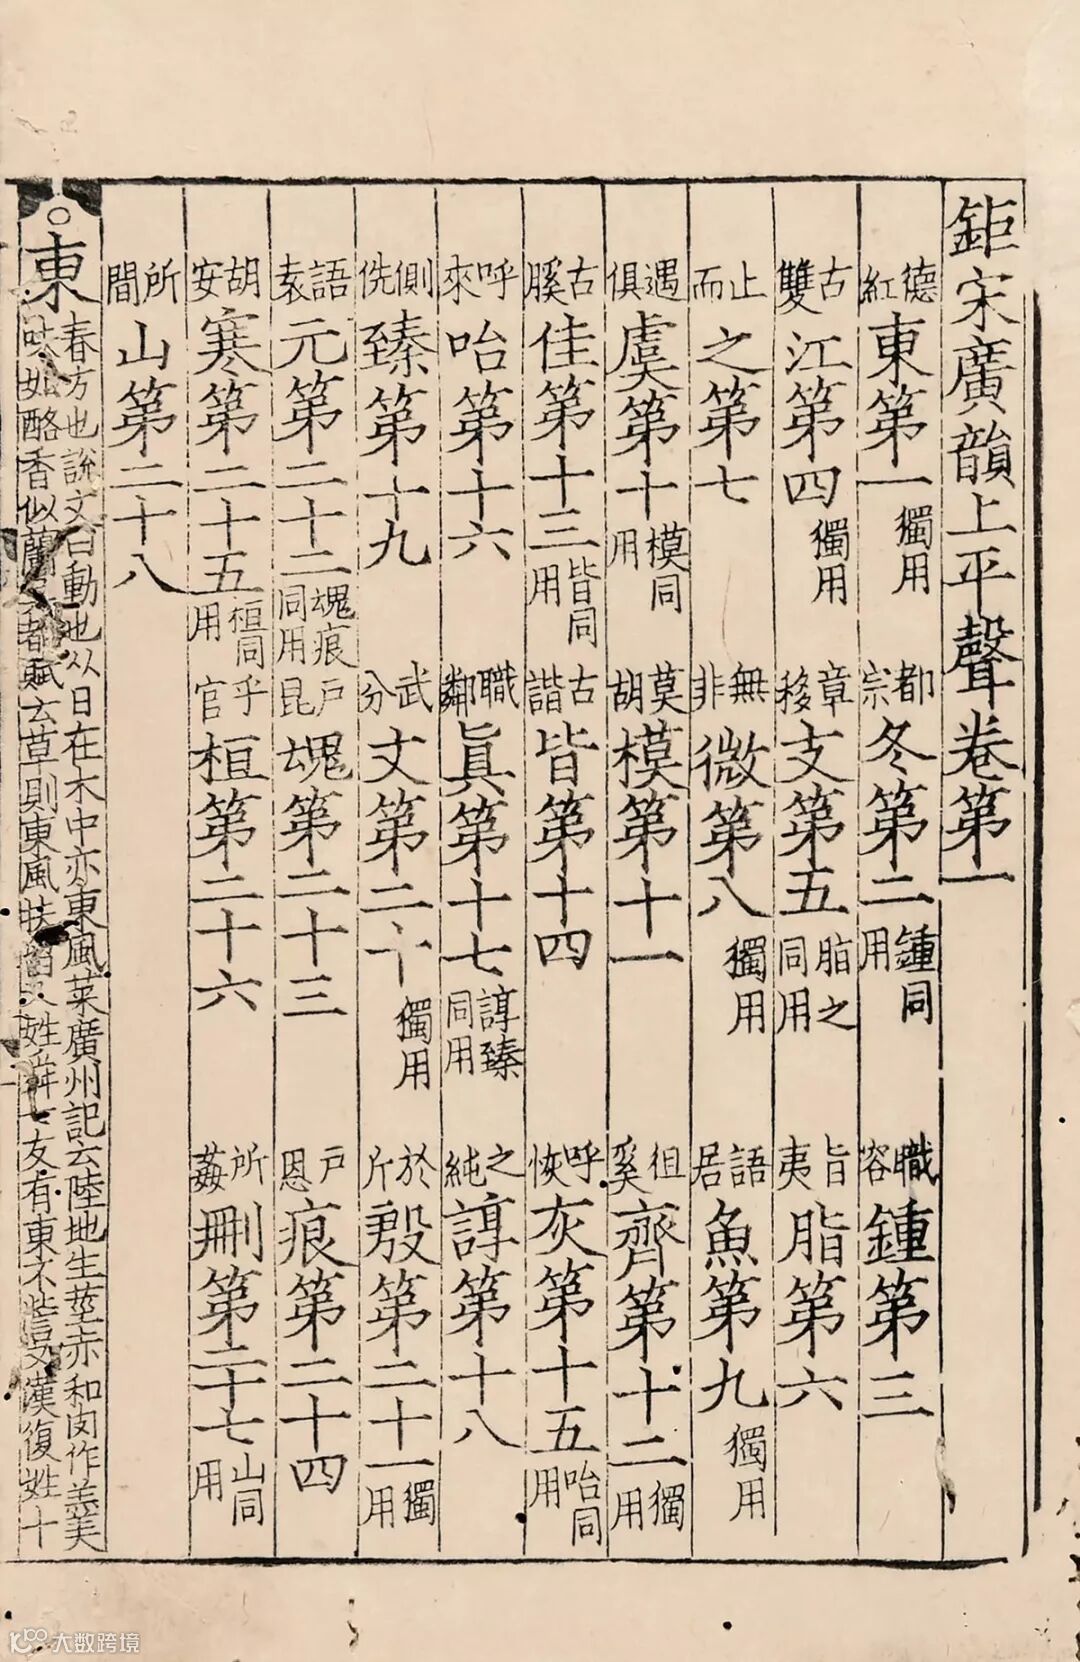 鉅宋廣韻上平聲卷第一
德紅東第一獨用 都宗冬第二鍾同用 職容鍾第三
古雙江第四獨用 章移支第五脂之同用 旨夷脂第六
止而之第七 無非微第八獨用 語居魚第九獨用
遇俱虞第十模同用 莫胡模第十一 徂奚齊第十二獨用
古膎佳第十三皆同用 古諧皆第十四 呼恢灰第十五咍同用
呼來咍第十六 職鄰眞第十七諄臻同用 之純諄第十八
側侁臻第十九 武分文第二十獨用 於斤殷第二十一獨用
語袁元第二十二魂痕同用 戶昆魂第二十三 戶恩痕第二十四
胡安寒第二十五桓同用 乎官桓第二十六 所姦刪第二十七山同用
所間山第二十八
○東
春方也說文曰動也从日在木中亦東風菜廣州記云陸地生莖赤和肉作羹
味如酪香似蘭吳都賦云草則東風扶留又姓舜七友有東不訾又漢復姓十
大数跨境